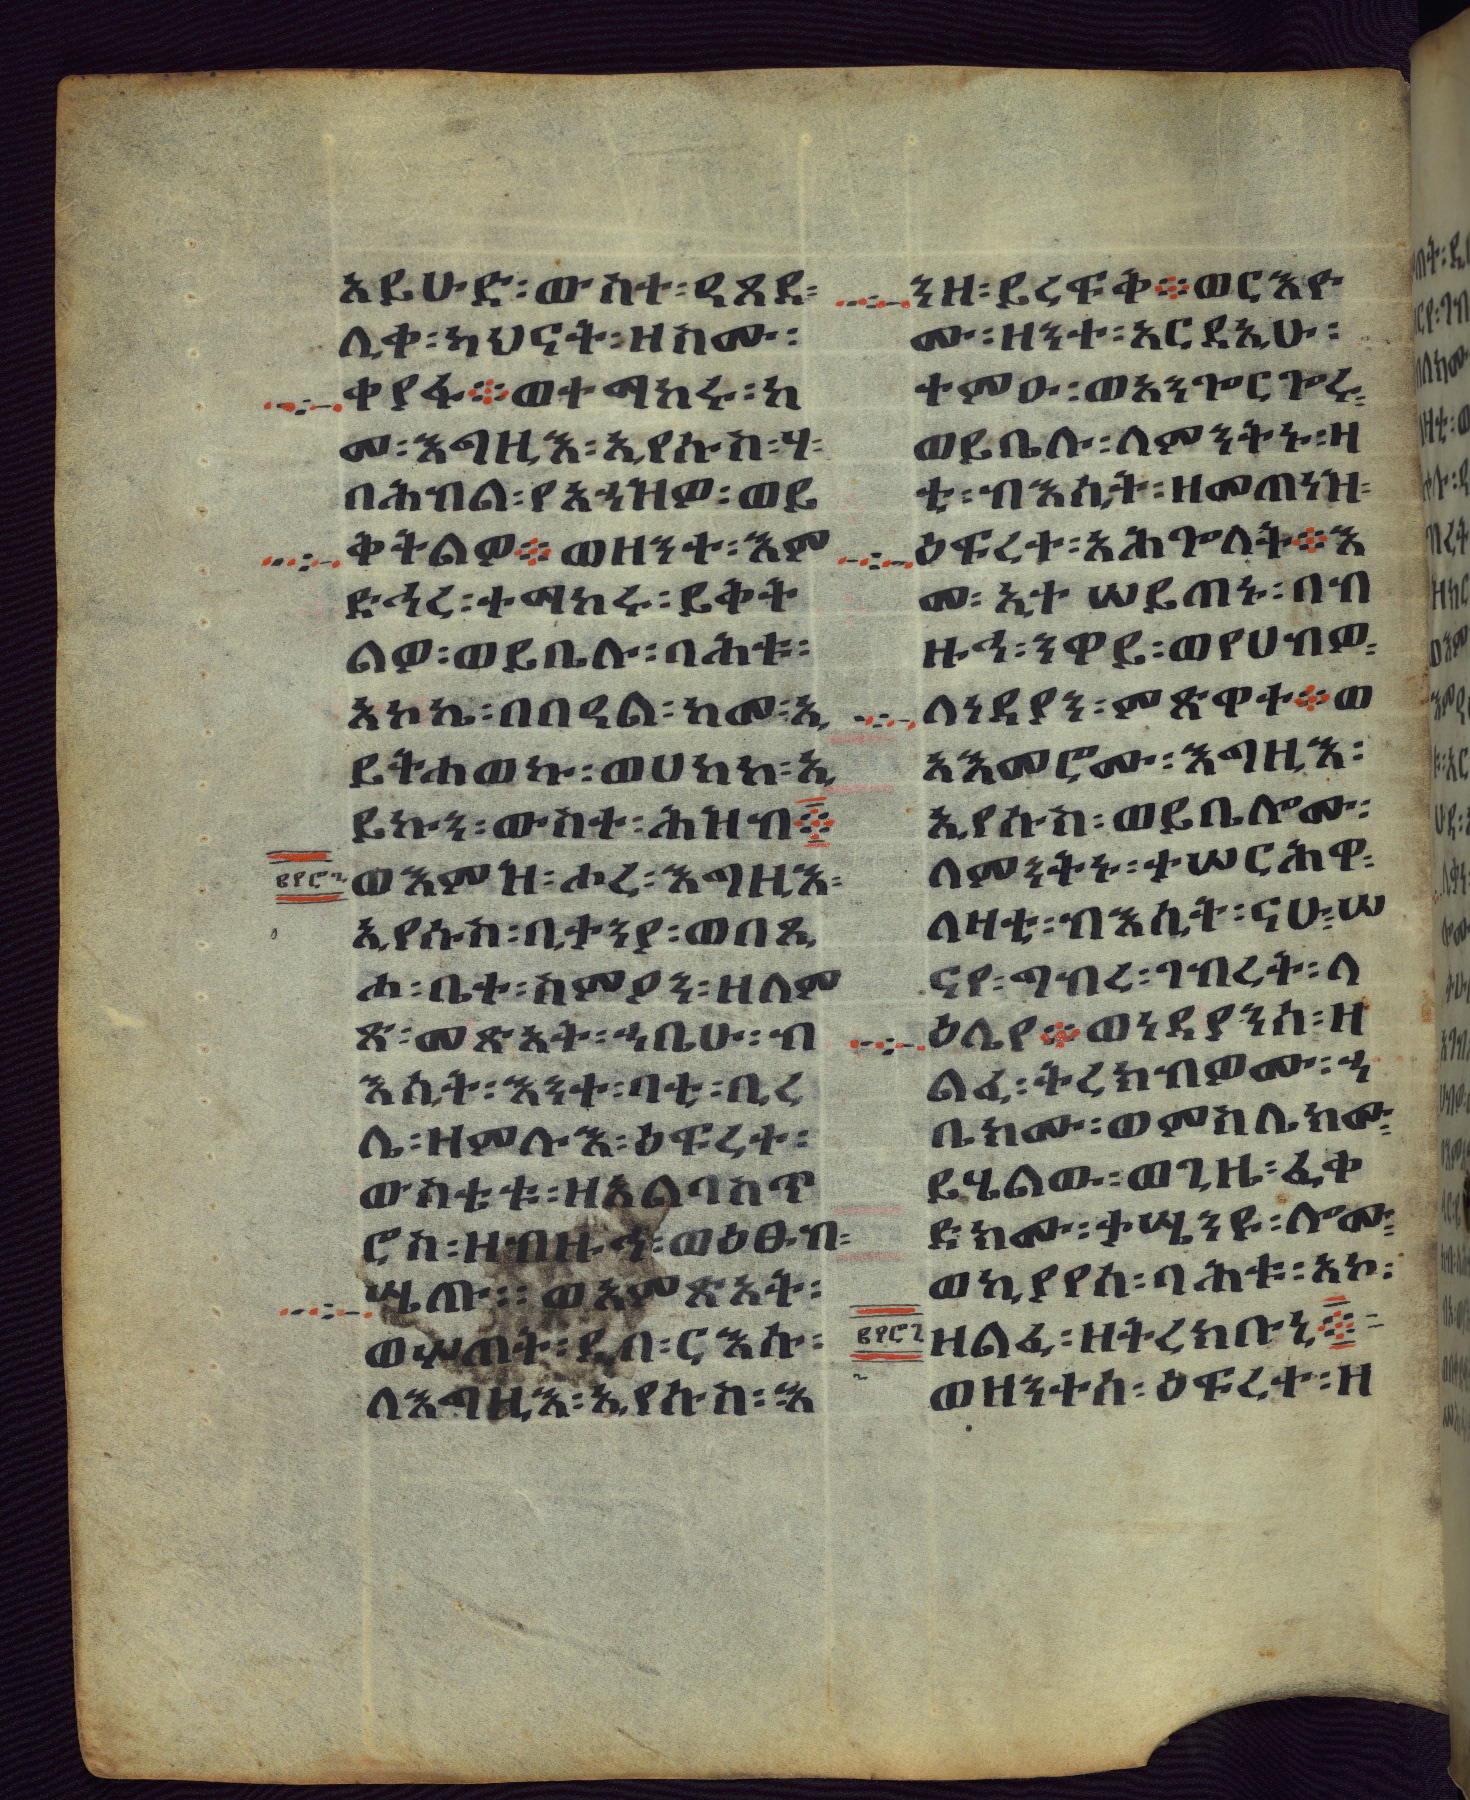 አይሁድ፡ውስተ፡ዓጸደ፡
ሊቀ፡ካህናት፡ዘስሙ፡
ቀያፋ፨ወተማከሩ፡ከ
መ፡እግዚእ፡ኢየሱስ፡ሃ፡
ባሕብል፡የአኀዝዎ፡ወይ
ቅትልዎ፨ወዘንተ፡እም
ድኅረ፡ተማከሩ፡ይቅት
ልዎ፡ወይቤሉ፡ባሕቱ፡
አኮኬ፡በበዓል፡ከመ፡ኢ
ይትሐወኩ፡ወሀከክ፡ኢ
ይኩን፡ውስተ፡ሕዝብ፨
፪፻፸፯
ወእምዝ፡ሖረ፡እግዚእ፡
ኢየሱስ፡ቢታንያ፡ወበጺ
ሐ፡ቤተ፡ስምዖን፡ዘለም
ጽ፡መጽአት፡ኀቤሁ፡ብ
እሲት፡እንተ፡ባቲ፡ቢረ
ሌ፡ዘምሉእ፡ዕፍረተ፡
ውስቴቱ፡ዘአልባስጥ
ሮስ፡ዘብዙኅ፡ወዕፁብ፡
ሤጡ፡፡ወአምጽአት፡
ወሦጠት፡ዲበ፡ርእሱ፡
ለእግዚእ፡ኢየሱስ፡እ
ንዘ፡ይረፍቅ፨ወርእዮ
ሙ፡ዘንተ፡አርዳኢሁ፡
ተምዑ፡ወአንጐርጐሩ፡
ወይቤሉ፡ለምንትኑ፡ዛ
ቲ፡ብእሲት፡ዘመጠነዝ፡
ዕፍረተ፡አሕጐለት፨እ
መ፡ኢተ ሠይጠኑ፡በብ
ዙኅ፡ንዋይ፡ወየሀብዎ፡
ለነዳያን፡ምጽዋተ፨ወ
አእመሮሙ፡እግዚእ፡
ኢየሱስ፡ወይቤሎሙ፡
ለምንትኑ፡ተሠርሕዋ፡
ለዛቲ፡ብእሲት፡ናሁ፡ሠ
ናየ፡ግብረ፡ገብረት፡ላ
ዕሌየ፨ወነዳያንሰ፡ዘ
ልፈ፡ትረክብዎሙ፡ኀ
ቤክሙ፡ወምስሌክሙ፡
ይሄልው፡ወጊዜ፡ፈቀ
ድክሙ፡ታሤንዩ፡ሎሙ፡
ወኪያየሰ፡ባሕቱ፡አኮ፡
፪፻፸፯
ዘልፈ፡ዘትረክቡኒ፨፡
ወዘንተሰ፡ዕፍረተ፡ዘ